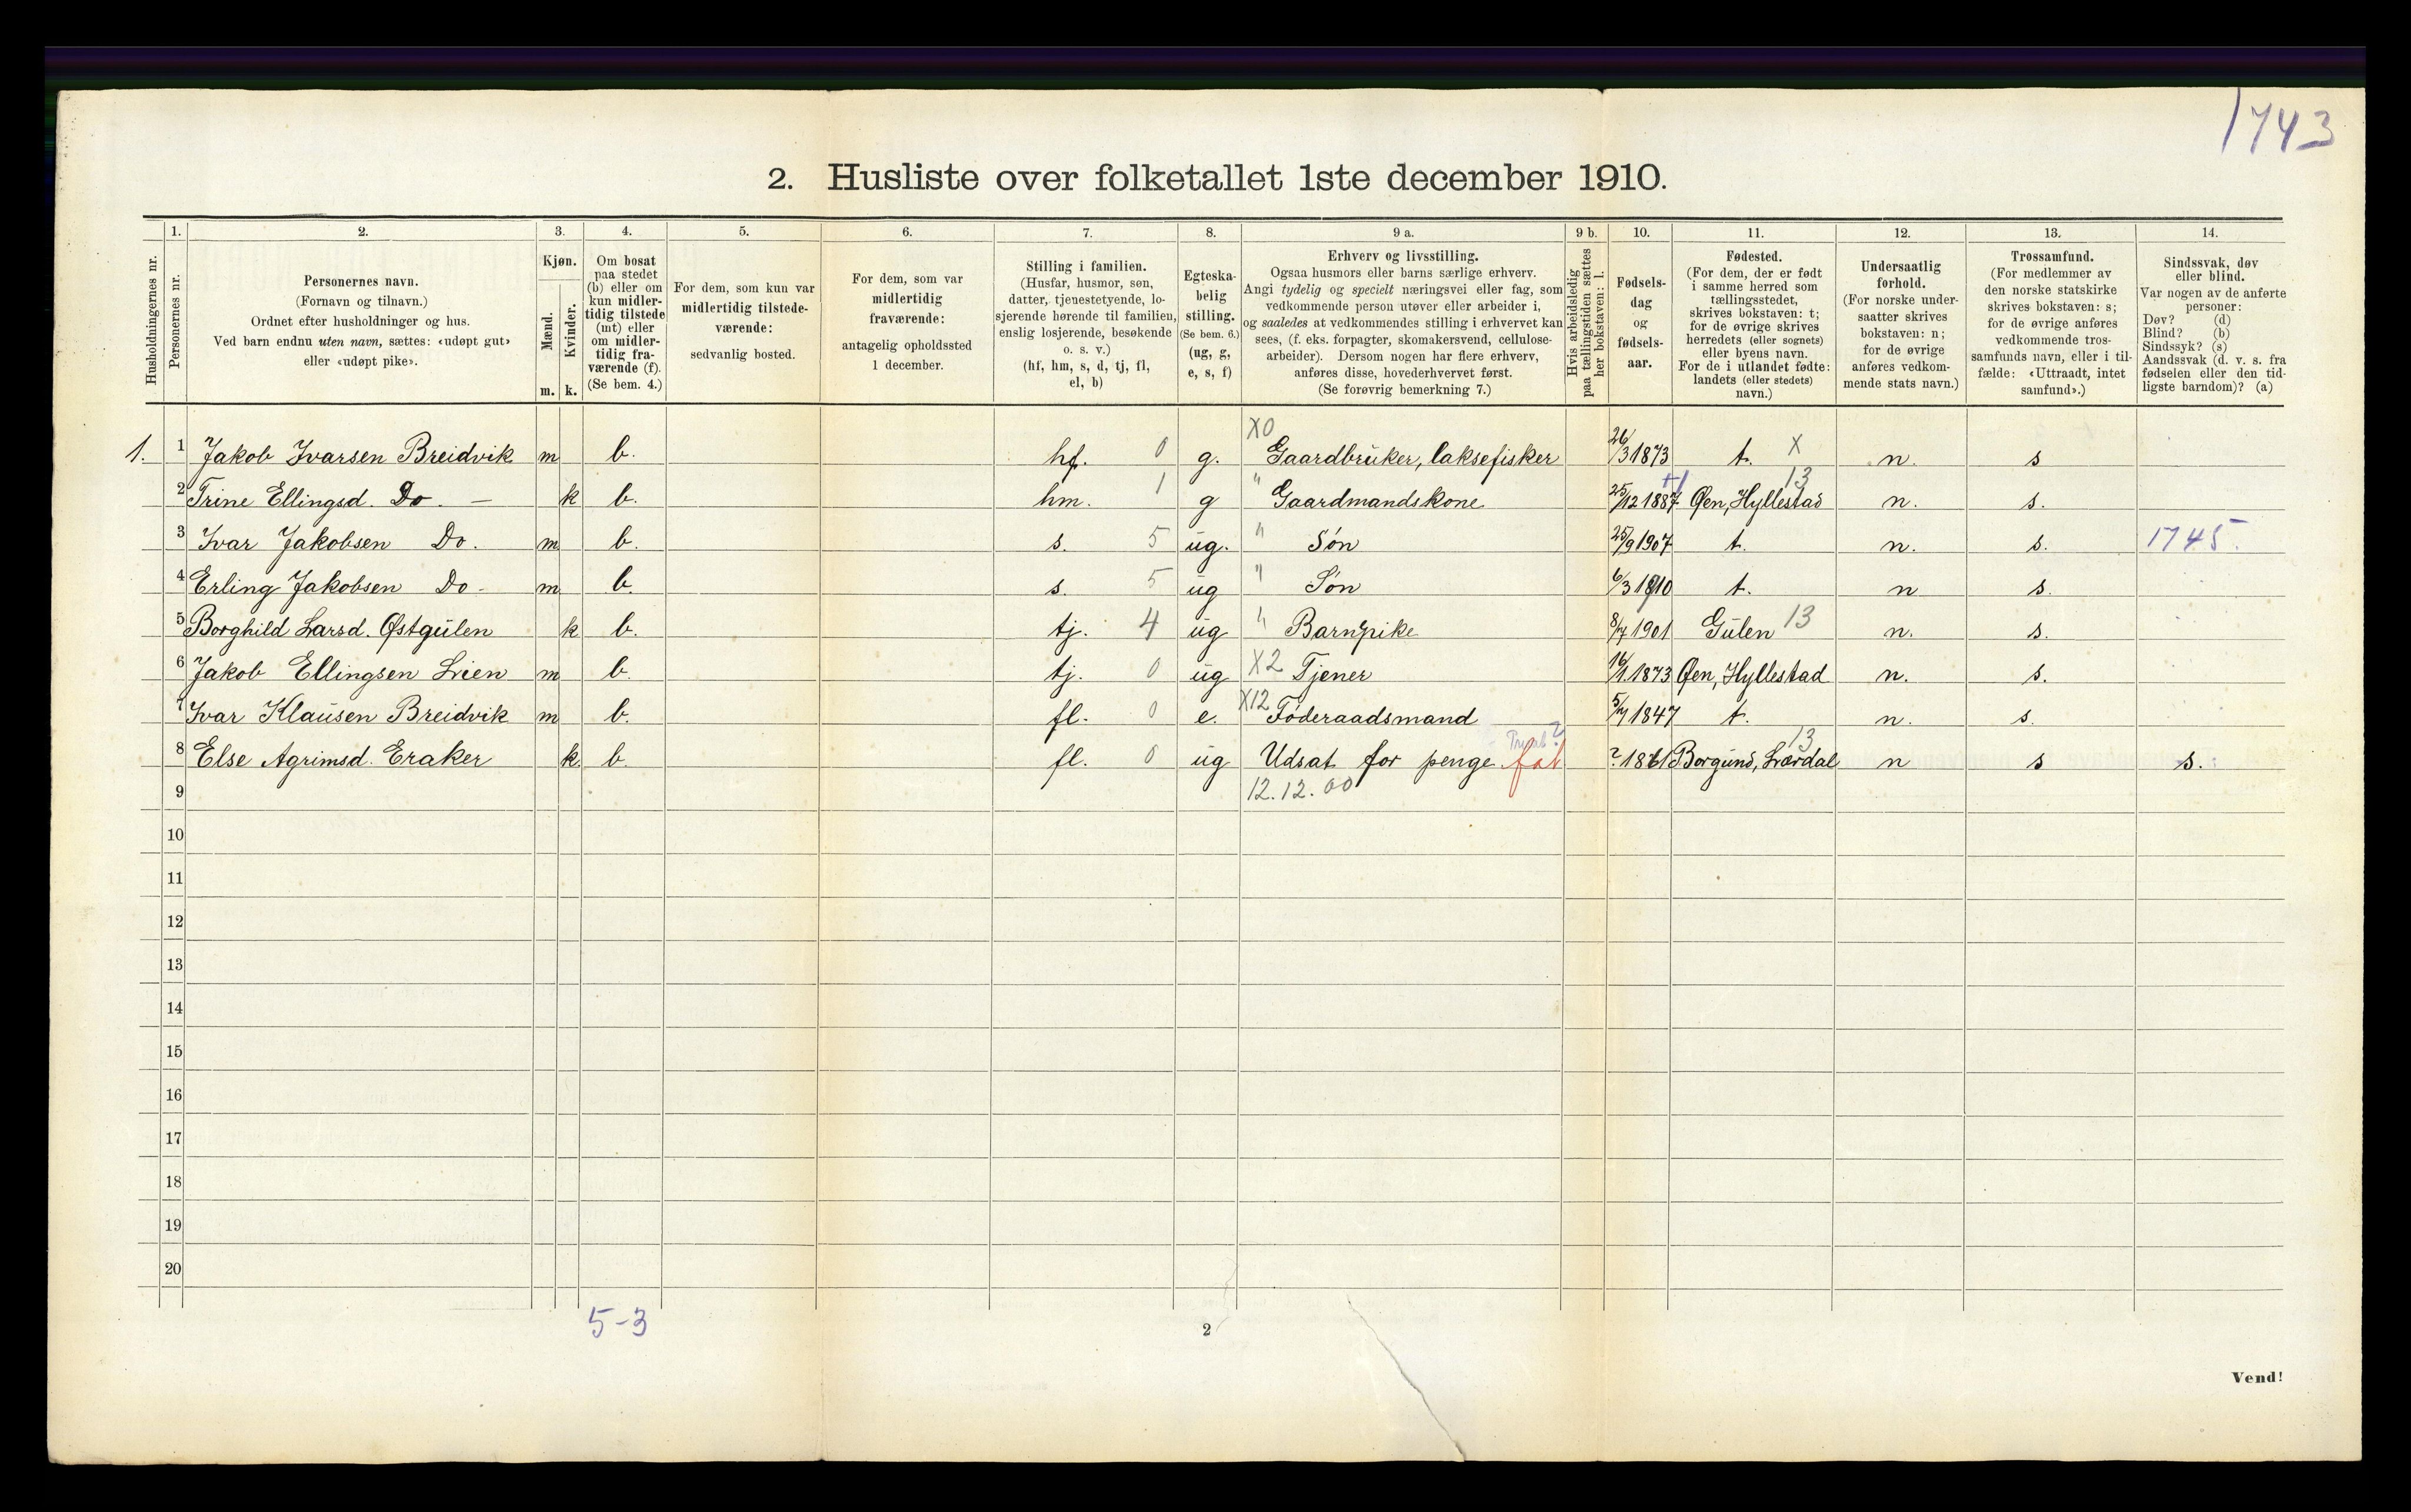 1743
2. Husliste over folketallet 1ste december 1910.
1. 2. 3. 4. 5. 6. 7. 8. 9 a. 9 b. 10. 11. 12. 13. 14.
Husholdningernes nr.
Personernes nr.
Personernes navn.
(Fornavn og tilnavn.)
Ordnet efter husholdninger og hus.
Ved barn endnu uten navn, sættes: «udøpt gut»
eller «udøpt pike».
Kjøn.
Mænd.
Kvinder.
m. k.
Om bosat
paa stedet
(b) eller om
kun midler-
tidig tilstede
(mt) eller
om midler-
tidig fra-
værende (f).
(Se bem. 4.)
For dem, som kun var
midlertidig tilstede-
værende:
sedvanlig bosted.
For dem, som var
midlertidig
fraværende:
antagelig opholdssted
1 december.
Stilling i familien.
(Husfar, husmor, søn,
datter, tjenestetyende, lo-
sjerende hørende til familien,
enslig losjerende, besøkende
o. s. v.)
(hf, hm, s, d, tj, fl,
el, b)
Egteska-
belig
stilling.
(Se bem. 6.)
(ug, g,
e, s, f)
Erhverv og livsstilling.
Ogsaa husmors eller barns særlige erhverv.
Angi tydelig og specielt næringsvei eller fag, som
vedkommende person utøver eller arbeider i,
og saaledes at vedkommendes stilling i erhvervet kan
sees, (f. eks. forpagter, skomakersvend, cellulose-
arbeider). Dersom nogen har flere erhverv,
anføres disse, hovederhvervet først.
(Se forøvrig bemerkning 7.)
Hvis arbeidsledig
paa tællingstiden sættes
her bokstaven: l.
Fødsels-
dag
og
fødsels-
aar.
Fødested.
(For dem, der er født
i samme herred som
tællingsstedet,
skrives bokstaven: t;
for de øvrige skrives
herredets (eller sognets)
eller byens navn.
For de i utlandet fødte:
landets (eller stedets)
navn.)
Undersaatlig
forhold.
(For norske under-
saatter skrives
bokstaven: n;
for de øvrige
anføres vedkom-
mende stats navn.)
Trossamfund.
(For medlemmer av
den norske statskirke
skrives bokstaven: s;
for de øvrige anføres
vedkommende tros-
samfunds navn, eller i til-
fælde: «Uttraadt, intet
samfund».)
Sindssvak, døv
eller blind.
Var nogen av de anførte
personer:
Døv? (d)
Blind? (b)
Sindssyk? (s)
Aandssvak (d. v. s. fra
fødselen eller den tid-
ligste barndom)? (a)
X0
1. 1 Jakob Ivarsen Breidvik m b. hf. 0 g. Gaardbruker, laksefisker 26/3 1873 t. X n. s
2 Trine Ellingsd. Do. — k b. hm. 1 g " Gaardmandskone 25/12 1887 Øen, Hyllestad 13 n. s.
3 Ivar Jakobsen Do. m b. s. 5 ug. " Søn 25/9 1907 t. n. s. 1745.
4 Erling Jakobsen Do - m b. s. 5 ug " Søn 6/3 1910 t. n s.
5 Borghild Larsd. Østgulen k b. tj. 4 ug " Barnpike 8/7 1901 Gulen 13 n. s.
6 Jakob Ellingsen Lien m b. tj. 0 ug X2 Tjener 16/1 1873 Øen, Hyllestad n. s.
7 Ivar Klausen Breidvik m b. fl. 0 e. X12 Føderaadsmand 5/7 1847 t. n. s.
8 Else Agrimsd. Eraker k b. fl. 0 ug Udsat for penge fat ? 1861 Borgund, Lærdal 13 n s s.
9 12.12.00
10
11
12
13
14
15
16
17
18
19
20
5-3
2
Vend!